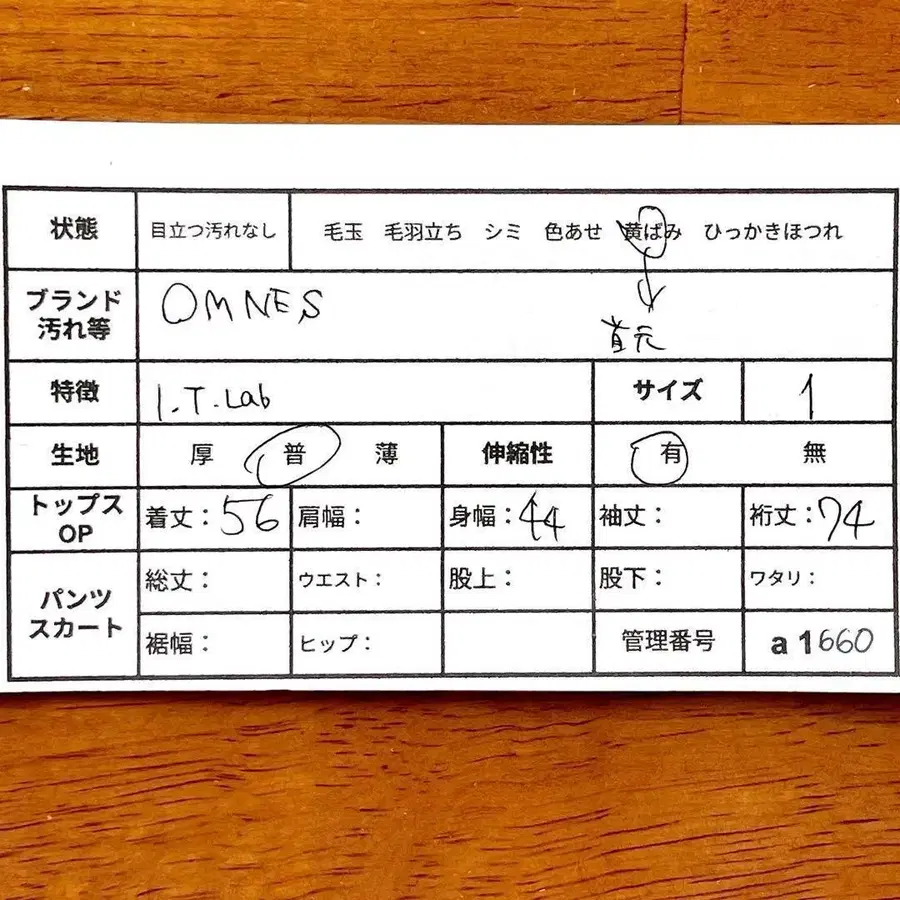 状態 目立つ汚れなし 毛玉 毛羽立ち シミ 色あせ 黄ばみ ひっかきほつれ
ブランド OMNES
汚れ等 首元
特徴 I.T.Lab サイズ 1
生地 厚 普 薄 伸縮性 有 無
トップス
OP 着丈：56 肩幅： 身幅：44 袖丈： 裄丈：74
パンツ
スカート
総丈： ウエスト： 股上： 股下： ワタリ：
裾幅： ヒップ： 管理番号 a 1660